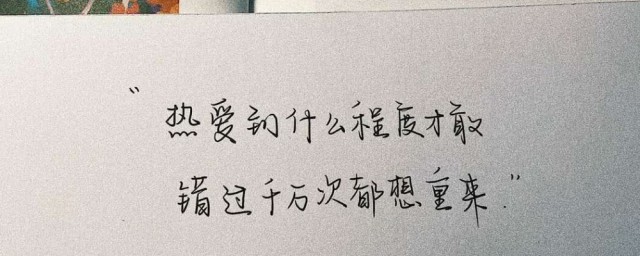 “热爱到什么程度才敢
错过千万次都想重来.”